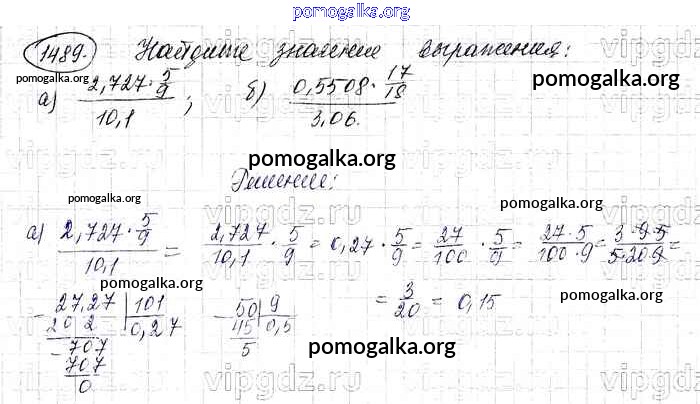 pomogalka.org
1489. Найдите значение выражения:
pomogalka.org
pomogalka.org
а) (2,727 · 5/9) / 10,1 ; б) (0,5508 · 17/18) / 3,06.
pomogalka.org
pomogalka.org
Решение:
pomogalka.org
pomogalka.org
а) (2,727 · 5/9) / 10,1 = 2,727/10,1 · 5/9 = 0,27 · 5/9 = 27/100 · 5/9 = (27 · 5)/(100 · 9) = (3 · 9 · 5)/(5 · 20 · 9) =
pomogalka.org
= 3/20 = 0,15
pomogalka.org
- 27,27 | 101
20 2 | 0,27
- 707
707
0
- 50 | 9
45 | 0,5
5
pomogalka.org
vipgdz.ru
vipgdz.ru
vipgdz.ru